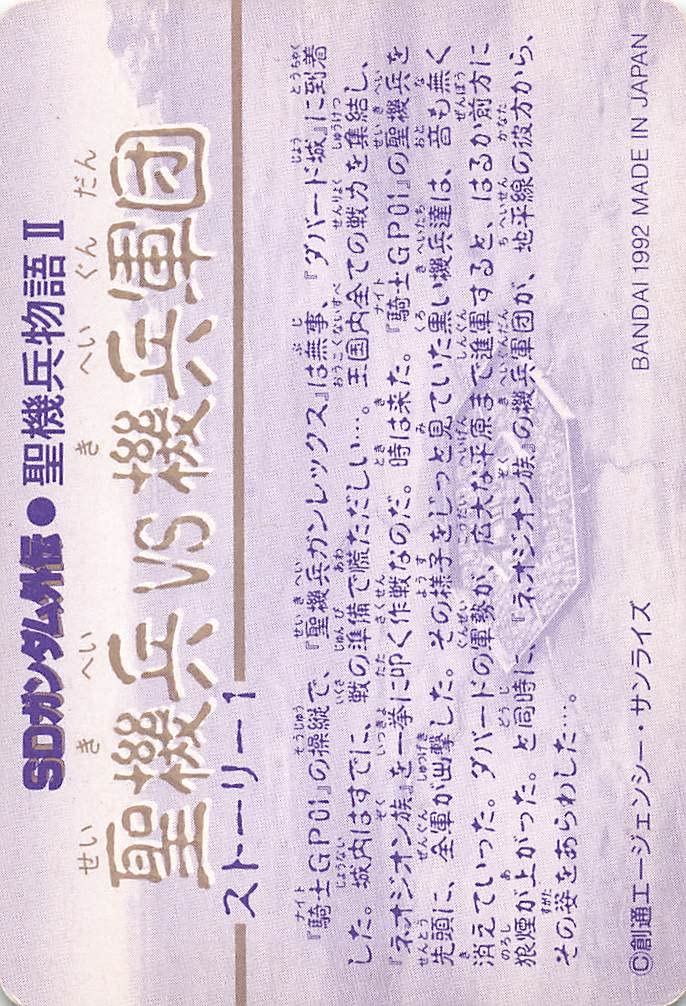 SDガンダム外伝●聖機兵物語Ⅱ
せい き へい き へい ぐん だん
聖機兵VS機兵軍団
ストーリー1
『騎士GP01』の操縦で、『聖機兵ガンレックス』は無事、『ダバード城』に到着
した。城内はすでに、戦の準備で慌ただしい…。王国内全ての戦力を集結し、
『ネオジオン族』を一挙に叩く作戦なのだ。時は来た。『騎士GP01』の聖機兵を
先頭に、全軍が出撃した。その様子をじっと見ていた黒い機兵達は、音も無く
消えていった。ダバードの軍勢が、広大な平原まで進軍すると、はるか前方に
狼煙が上がった。と同時に、『ネオジオン族』の機兵軍団が、地平線の彼方から、
その姿をあらわした…。
©創通エージェンシー・サンライズ
BANDAI 1992 MADE IN JAPAN